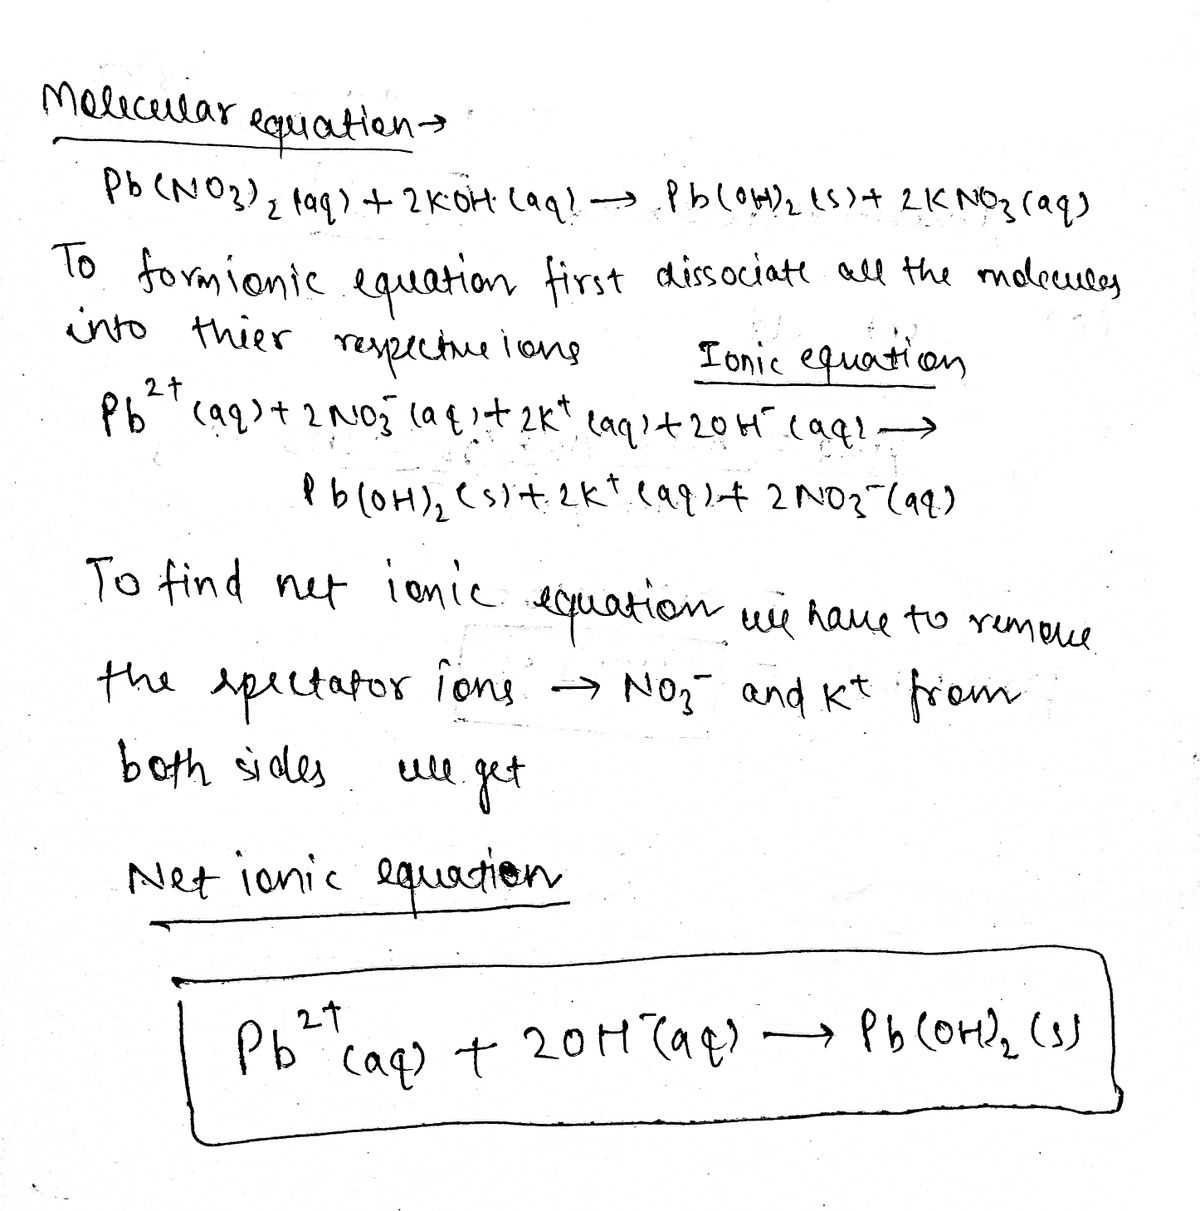 Molecular equation→
Pb(NO3)2 (aq) + 2KOH (aq) → Pb(OH)2 (s) + 2KNO3 (aq)
To formionic equation first dissociate all the molecules
into thier respective ions Ionic equation
Pb²⁺ (aq) + 2NO3⁻ (aq) + 2K⁺ (aq) + 2OH⁻ (aq) →
Pb(OH)2 (s) + 2K⁺ (aq) + 2NO3⁻ (aq)
To find net ionic equation we have to remove
the spectator ions → NO3⁻ and K⁺ from
both sides we get
Net ionic equation
Pb²⁺ (aq) + 2OH⁻ (aq) → Pb(OH)2 (s)